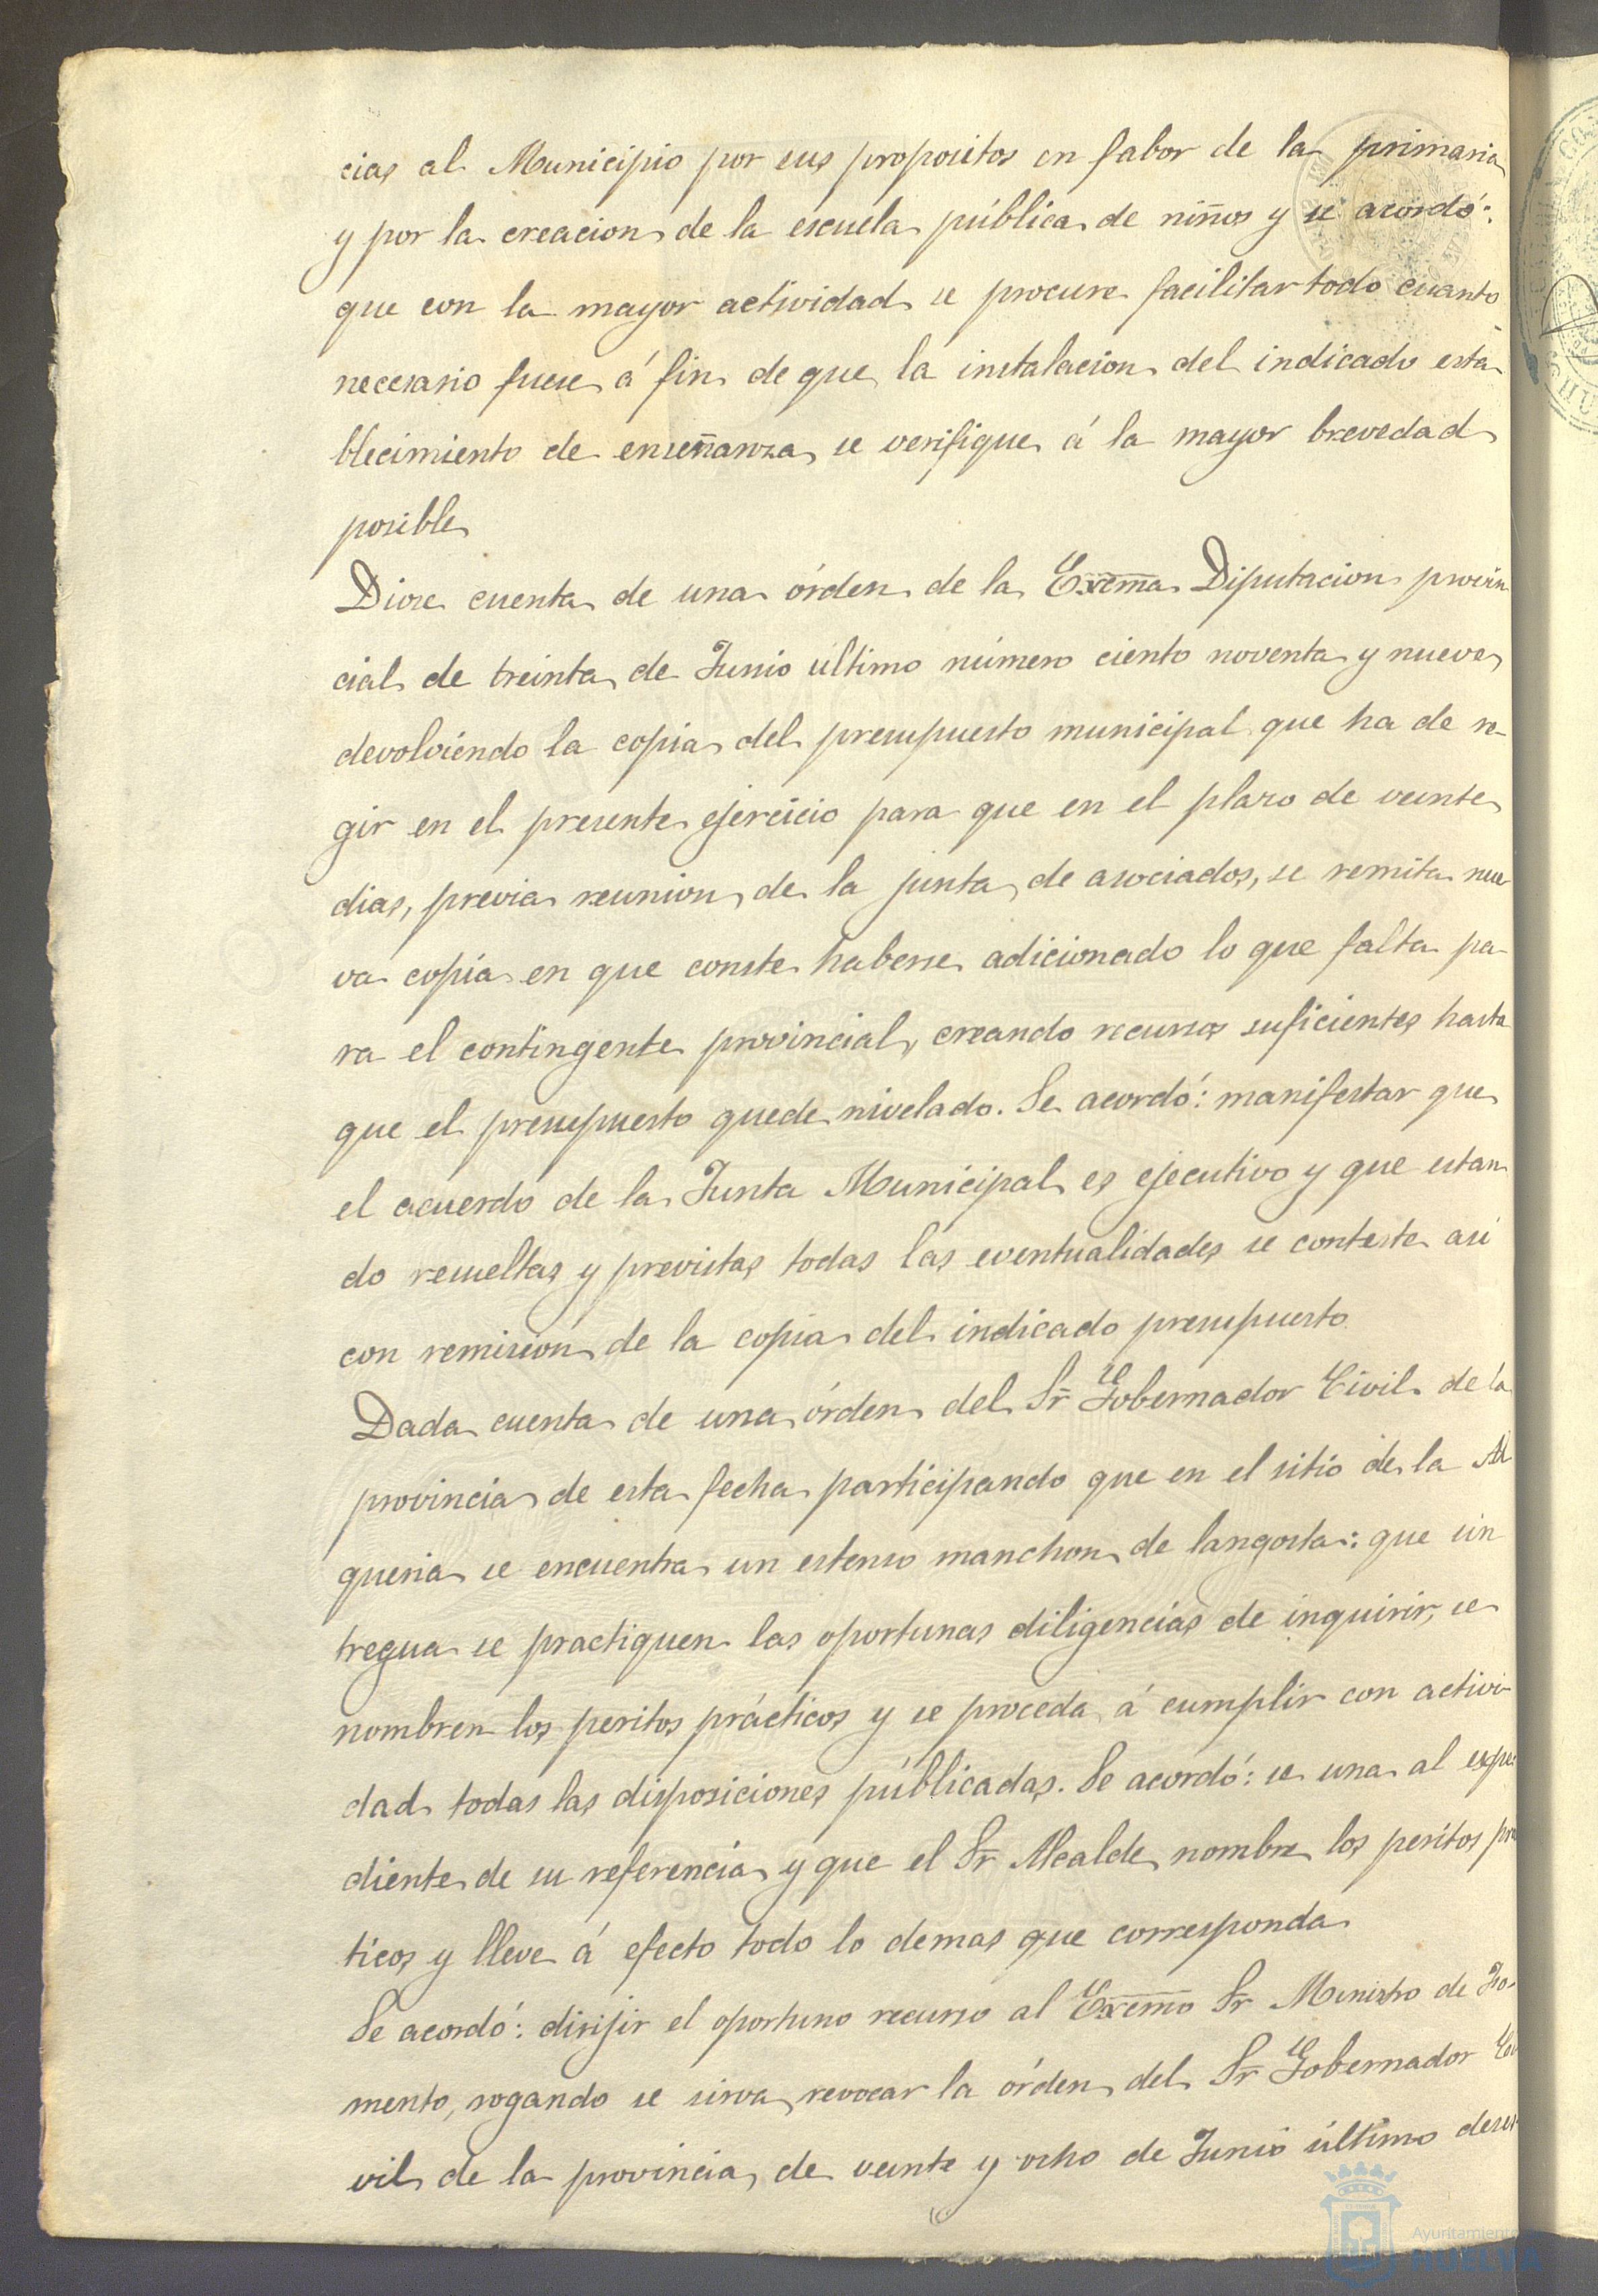 cias al Municipio por sus propositos en fabor de la primaria
y por la creacion de la escuela pública de niños y se acordó:
que con la mayor actividad se procure facilitar todo cuanto
necesario fuese á fin de que la instalacion del indicado esta
blecimiento de enseñanza se verifique á la mayor brevedad
posible
Diose cuenta de una órden de la Excma Diputacion provin
cial de treinta de Junio último número ciento noventa y nueve
devolviendo la copia del presupuesto municipal que ha de re-
gir en el presente ejercicio para que en el plazo de veinte
dias, previa reunion de la junta de asociados, se remita nue
va copia en que conste haberse adicionado lo que falta pa-
ra el contingente provincial, creando recursos suficientes hasta
que el presupuesto quede nivelado. Se acordó: manifestar que
el acuerdo de la Junta Municipal es ejecutivo y que estan
do resueltas y previstas todas las eventualidades se conteste asi
con remision de la copia del indicado presupuesto
Dada cuenta de una órden del Sr Gobernador Civil de la
provincia de esta fecha participando que en el sitio de la Al
queria se encuentra un estenso manchon de langosta: que sin
tregua se practiquen las oportunas diligencias de inquirir, se
nombren los peritos prácticos y se proceda á cumplir con activi-
dad todas las disposiciones públicadas. Se acordó: se una al espe
diente de su referencia y que el Sr Alcalde nombre los peritos prac
ticos y lleve á efecto todo lo demas que corresponda
Se acordó: dirijir el oportuno recurso al Excmo Sr Ministro de Fo-
mento, rogando se sirva revocar la órden del Sr Gobernador Ci
vil de la provincia de veinte y ocho de Junio último deses
Ayuntamiento
HUELVA